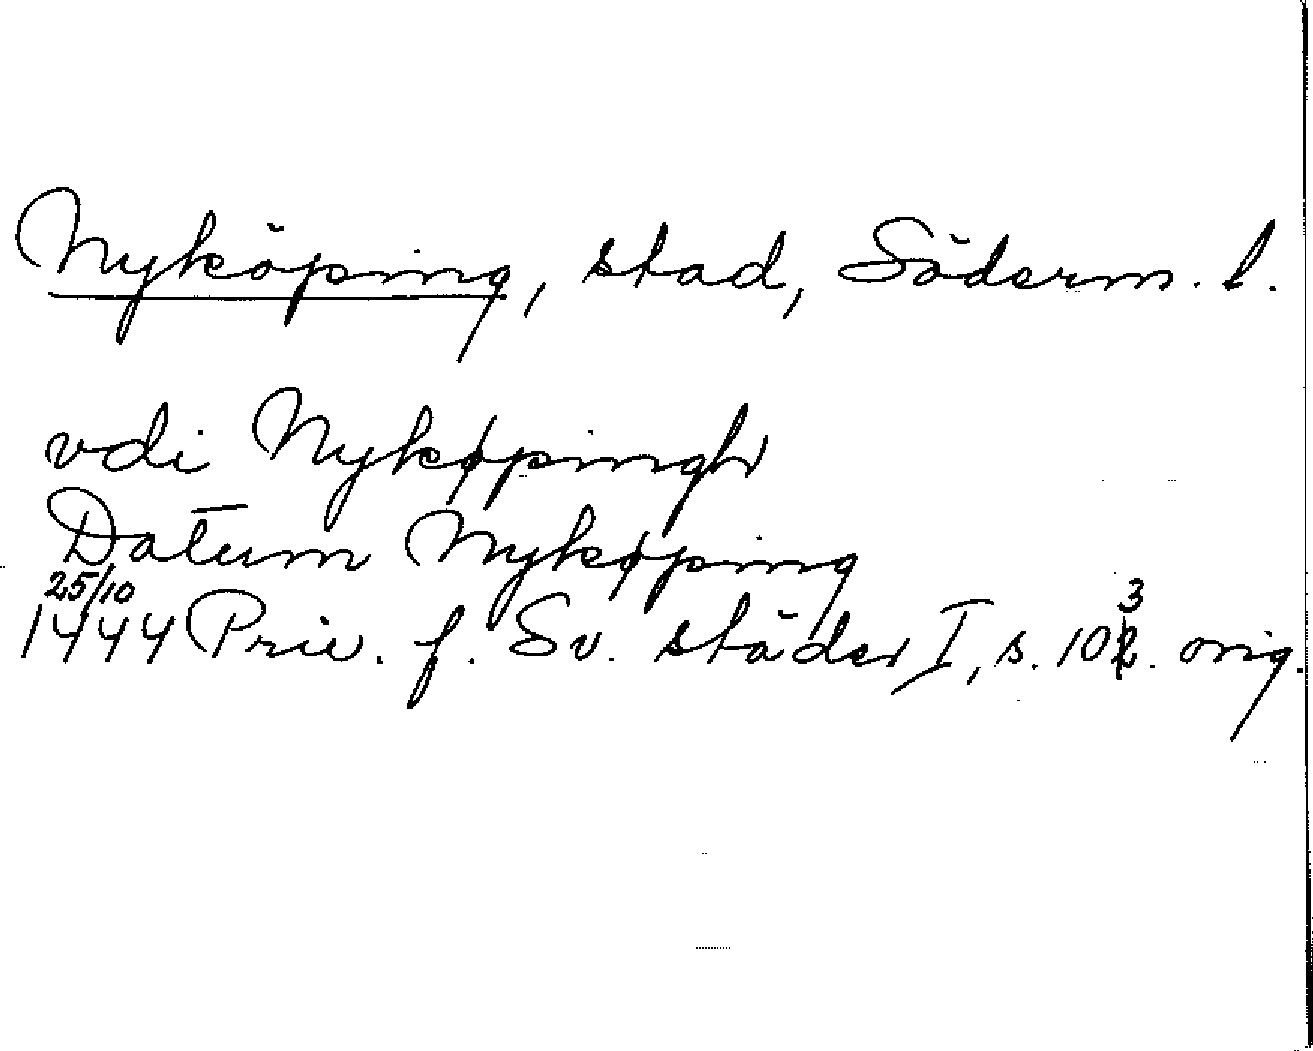 Nyköping, stad, Söderm. l.
vdi Nykøpingh
Datum Nykøping
25/10
1444 Priv. f. Sv. städer I, s. 103. orig.